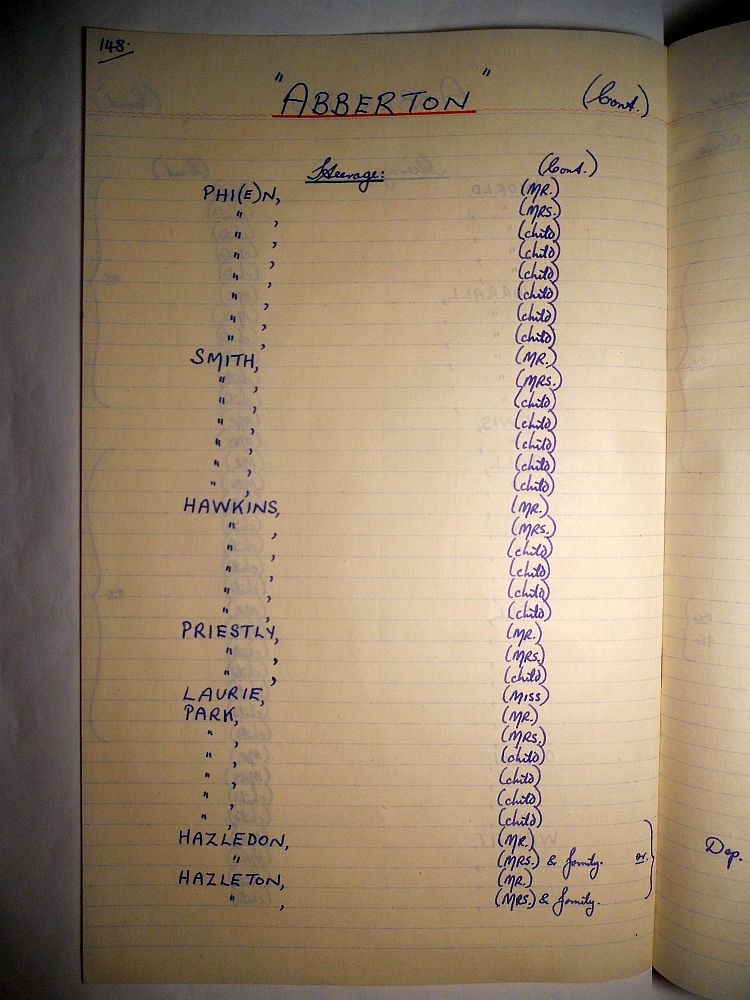 148.
"ABBERTON" (Cont.)
Steerage: (Cont.)
PHI(E)N, (MR.)
" , (MRS.)
" , (child)
" , (child)
" , (child)
" , (child)
" , (child)
" , (child)
SMITH, (MR.)
" , (MRS.)
" , (child)
" , (child)
" , (child)
" , (child)
" , (child)
HAWKINS, (MR.)
" , (MRS.)
" , (child)
" , (child)
" , (child)
" , (child)
PRIESTLY, (MR.)
" , (MRS.)
" , (child)
LAURIE, (MISS)
PARK, (MR.)
" , (MRS.)
" , (child)
" , (child)
" , (child)
" , (child)
HAZLEDON, (MR.)
" (MRS.) & family. or.
HAZLETON, (MR.)
" , (MRS.) & family.
Dep.